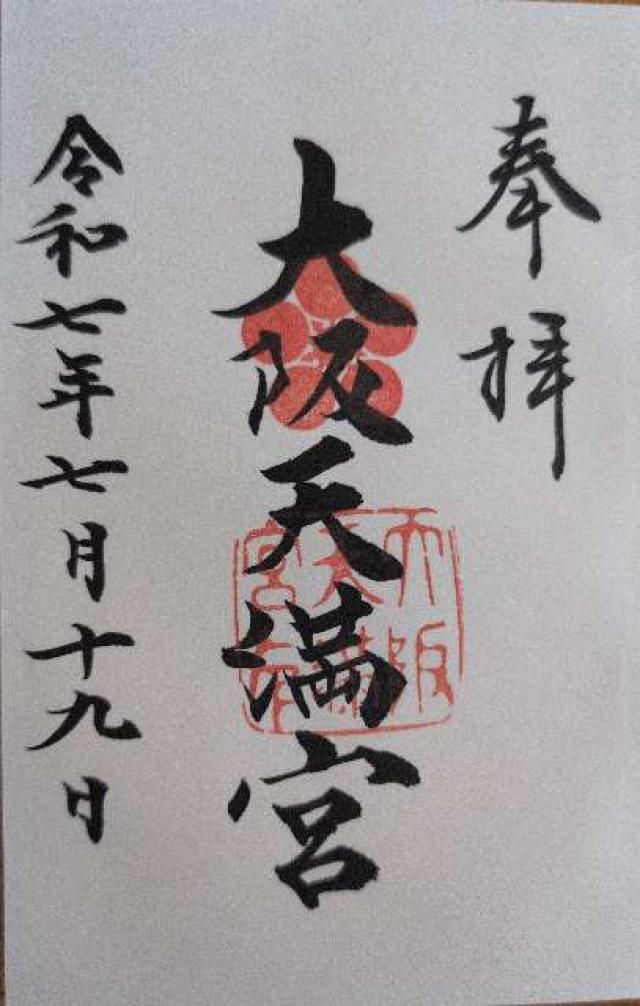 奉拝
大阪天満宮
令和七年七月十九日
大阪
天満
宮